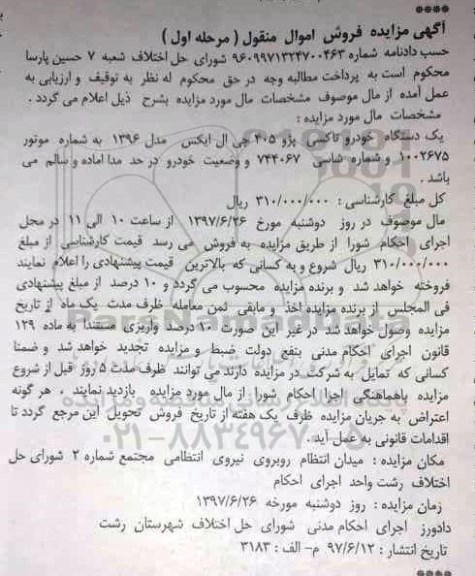 آگهی مزایده فروش اموال منقول ( مرحله اول )
حسب دادنامه شماره ۹۶۰۹۹۷۱۳۲۴۷۰۰۴۶۳ شورای حل اختلاف شعبه ۷ حسین پارسا
محکوم است به پرداخت مطالبه وجه در حق محکوم له نظر به توقیف و ارزیابی به
عمل آمده از مال موصوف مشخصات مال مورد مزایده بشرح ذیل اعلام می گردد .
مشخصات مال مورد مزایده :
یک دستگاه خودرو تاکسی پژو ۴۰۵ جی ال ایکس مدل ۱۳۹۶ به شماره موتور
۱۰۰۲۶۷۵ و شماره شاسی ۷۴۴۰۶۷ و وضعیت خودرو در حد مدا اماده و سالم می
باشد .
کل مبلغ کارشناسی : ۳۱۰/۰۰۰/۰۰۰ ریال
مال موصوف در روز دوشنبه مورخ ۱۳۹۷/۶/۲۶ از ساعت ۱۰ الی ۱۱ در محل
اجرای احکام شورا از طریق مزایده به فروش می رسد قیمت کارشناسی از مبلغ
۳۱۰/۰۰۰/۰۰۰ ریال شروع و به کسانی که بالاترین قیمت پیشنهادی را اعلام نمایند
فروخته خواهد شد و برنده مزایده محسوب می گردد و ۱۰ درصد از مبلغ پیشنهادی
فی المجلس از برنده مزایده اخذ و مابقی ثمن معامله ظرف مدت یک ماه از تاریخ
مزایده وصول خواهد شد در غیر این صورت ۱۰ درصد واریزی مستندا به ماده ۱۲۹
قانون اجرای احکام مدنی بنفع دولت ضبط و مزایده تجدید خواهد شد و ضمنا
کسانی که تمایل به شرکت در مزایده دارند می توانند ظرف مدت ۵ روز قبل از شروع
مزایده باهماهنگی اجرا احکام شورا از مال مورد مزایده بازدید نمایند . هر گونه
اعتراض به جریان مزایده ظرف یک هفته از تاریخ فروش تحویل این مرجع گردد تا
اقدامات قانونی به عمل آید .
مکان مزایده : میدان انتظام روبروی نیروی انتظامی مجتمع شماره ۲ شورای حل
اختلاف رشت واحد اجرای احکام
زمان مزایده : روز دوشنبه مورخه ۱۳۹۷/۶/۲۶
دادورز اجرای احکام مدنی شورای حل اختلاف شهرستان رشت
تاریخ انتشار : ۹۷/۶/۱۲ م- الف : ۳۱۸۳
ParsNamadData
۰۲۱-۸۸۳۴۹۶۷۰